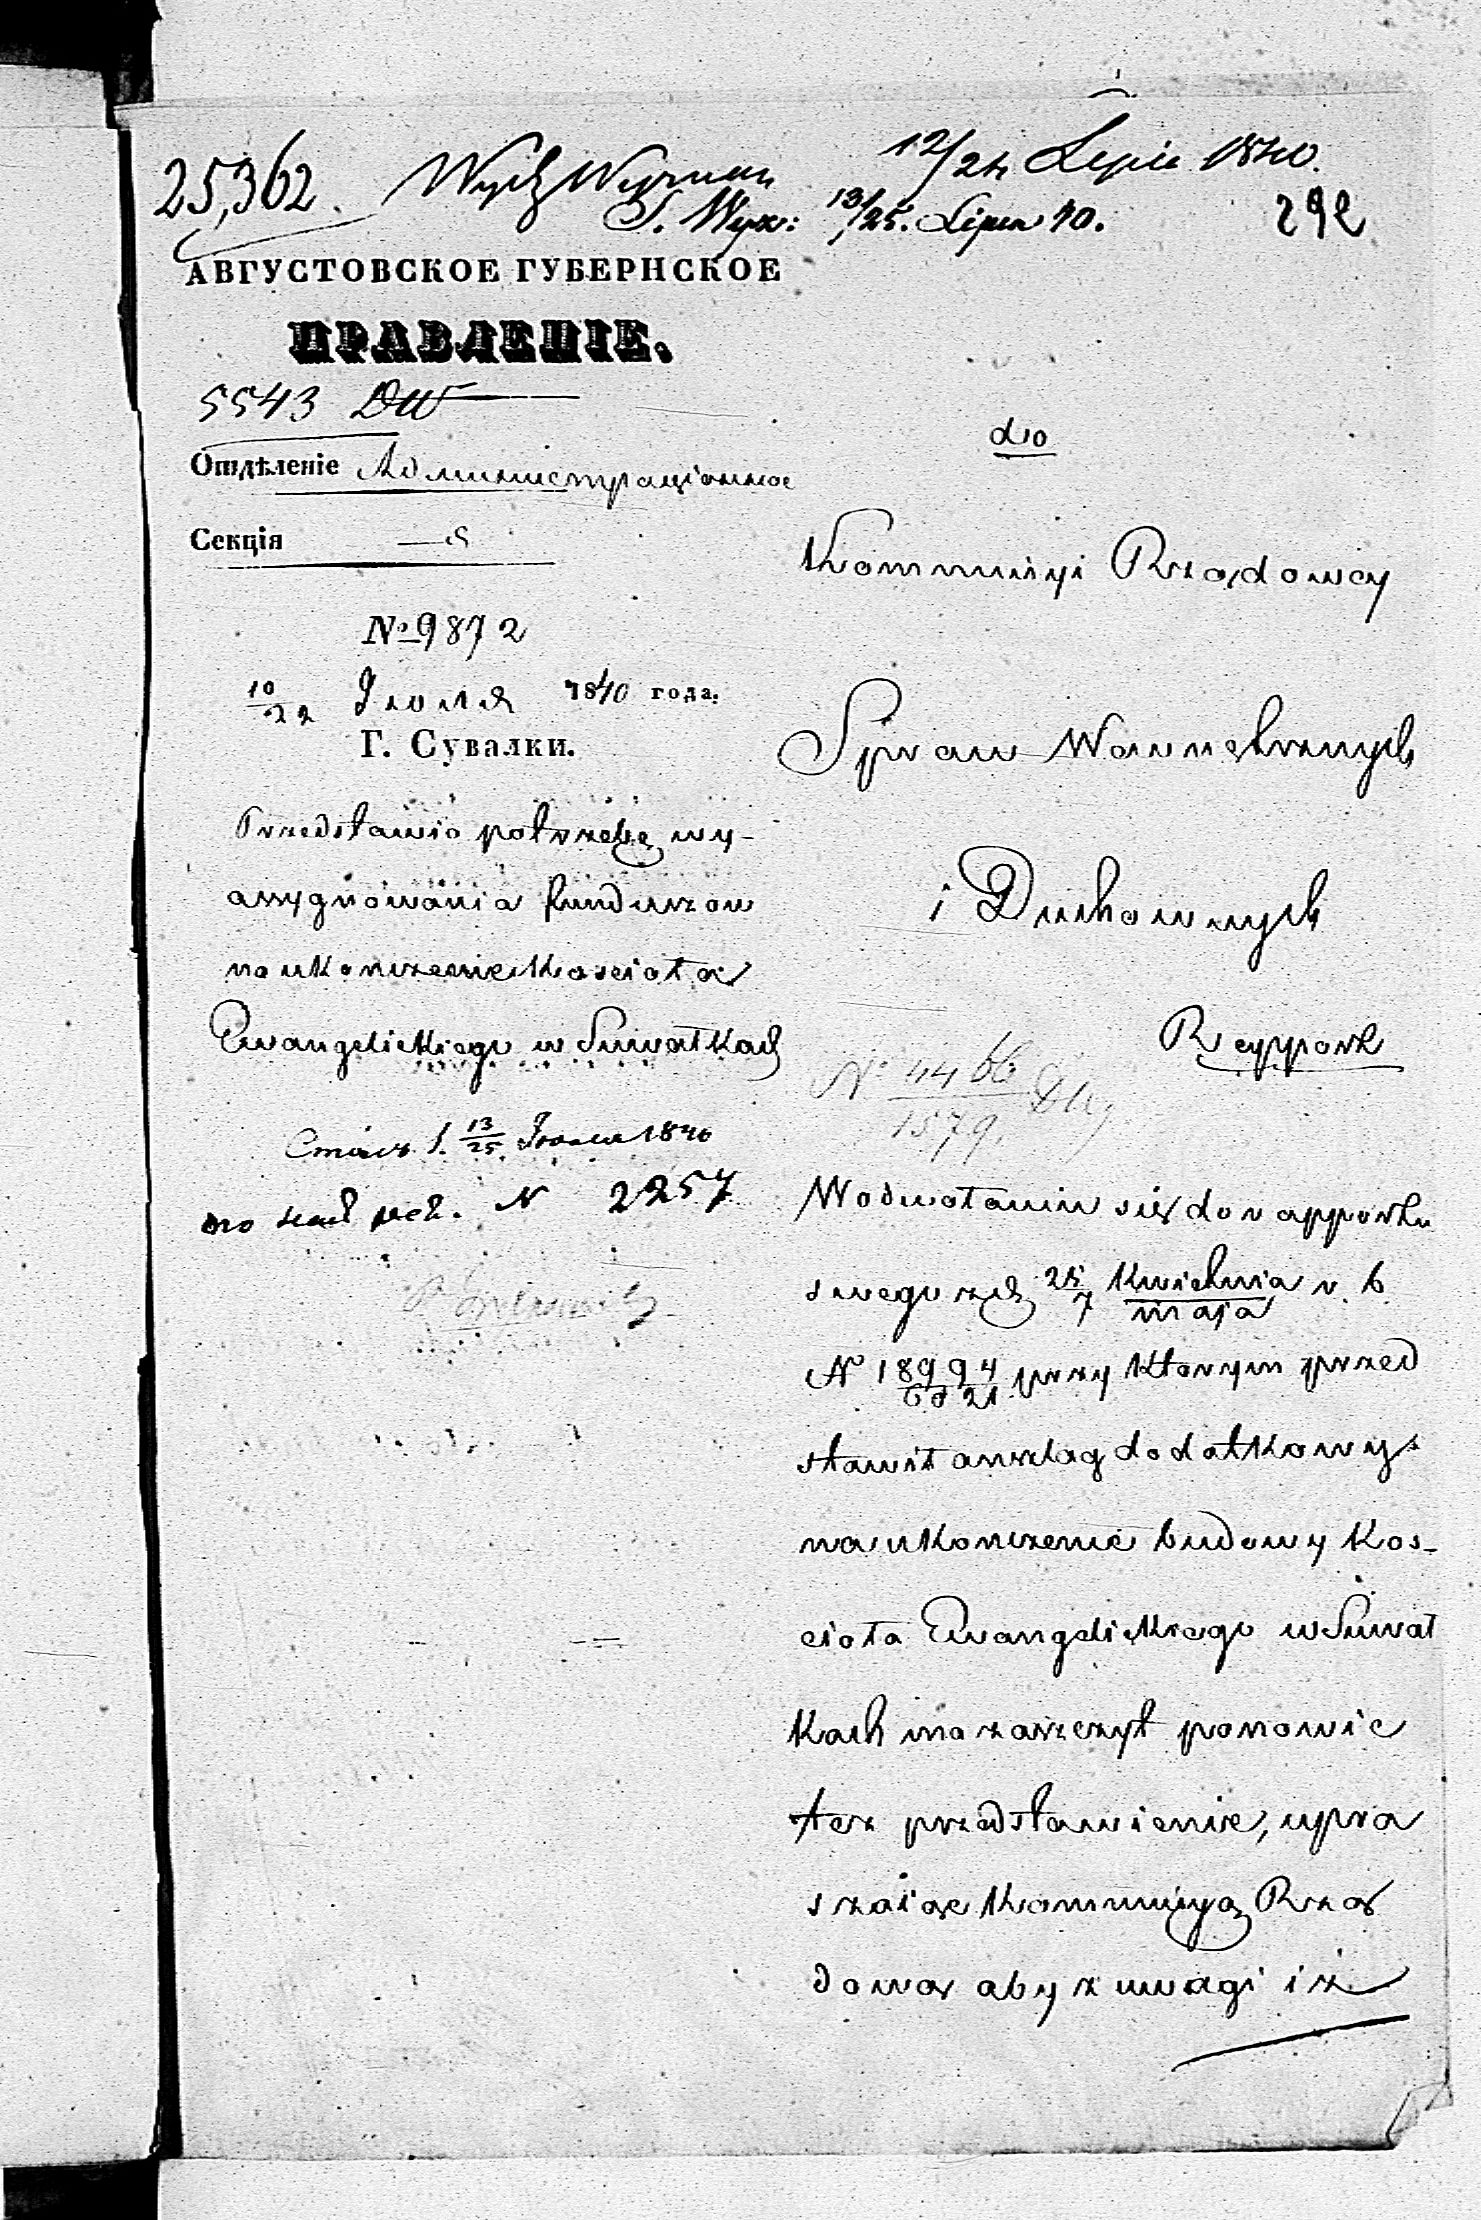 25,362. Wydz Wyznan 12/24 Lipca 1840.
S. Wyz: 13/25. Lipca 40. 292
АВГУСТОВСКОЕ ГУБЕРНСКОЕ
ПРАВЛЕНІЕ.
5543 DW
Отдѣленіе Администраціонное
Секція
№ 9872
10/22 Іюля 1840 года.
Г. Сувалки.
Przedstawia potrzebę wy-
assygnowania funduszow
na ukonczenie Koscioła
Ewangelickiego w Suwałkach
13/25 1840
N 2257
do
Kommissyi Rządowey
Spraw Wewnętrznych
i Duchownych
Rapport
N 4466/1579.
W odwołaniu się do rapportu
swego z d. 25/7 Kwietnia/maja r. b.
N 18994/6821 przy ktorym przed
stawił anszlag dodatkowy
na ukonczenie budowy Kos-
cioła Ewangelickiego w Suwał
kach ma zaszczyt ponowic
też przedstawienie, upra
szaiąc Kommissyą Rzą
dową aby z uwagi iż